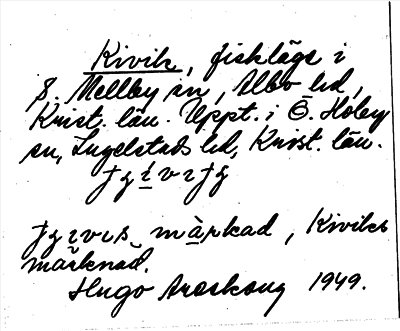 Kivik, fiskläge i
S. Mellby sn, Albo hd,
Krist. län. Uppt. i Ö. Hoby
sn, Ingelstads hd, Krist. län.
märkad, Kiviks
marknad.
Hugo Areskoug 1949.